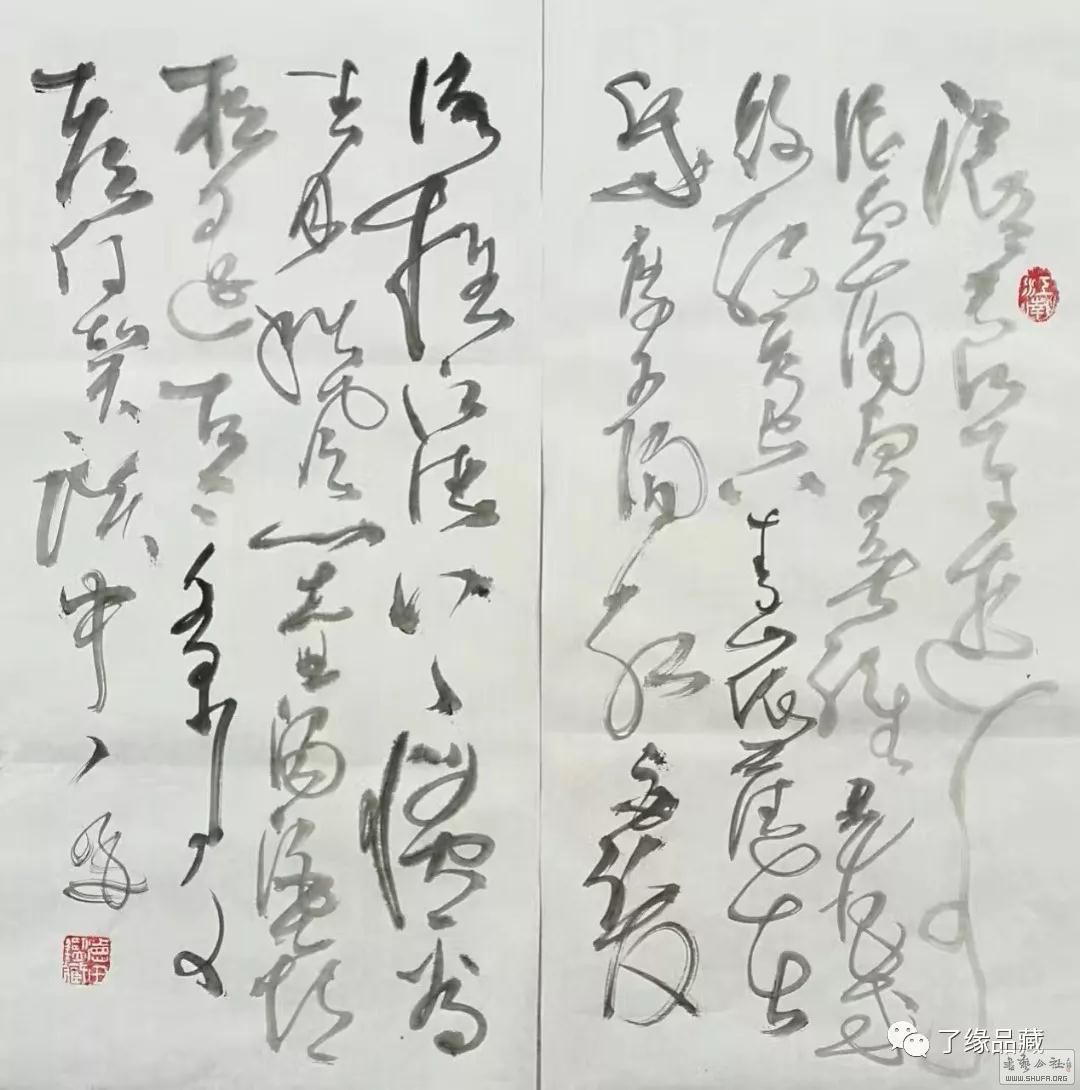 滚滚长江东逝水
浪花淘尽英雄是非成
败转头空青山依旧在
几度夕阳红白发
渔樵江渚上惯看
秋月春风一壶浊酒喜
相逢古今多少事
都付笑谈中
了缘品藏
书艺公社
WWW.SHUFA.ORG